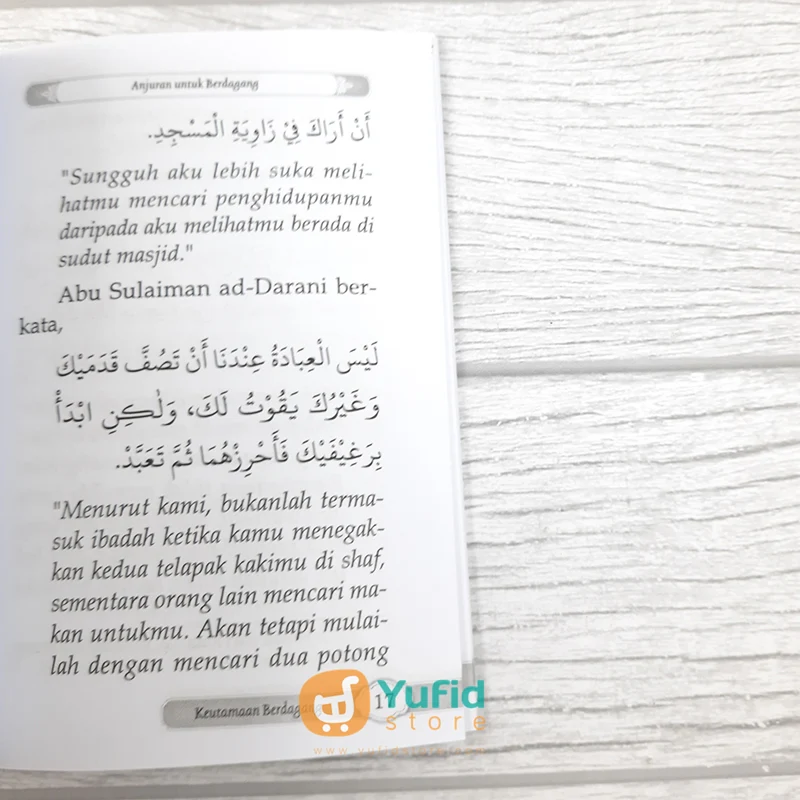 Anjuran untuk Berdagang
أَنْ أَرَاكَ فِيْ زَاوِيَةِ الْمَسْجِدِ.
"Sungguh aku lebih suka meli-
hatmu mencari penghidupanmu
daripada aku melihatmu berada di
sudut masjid."
Abu Sulaiman ad-Darani ber-
kata,
لَيْسَ الْعِبَادَةُ عِنْدَنَا أَنْ تَصُفَّ قَدَمَيْكَ
وَغَيْرُكَ يَقُوْتُ لَكَ، وَلَكِنِ ابْدَأْ
بِرَغِيْفَيْكَ فَأَحْرِزْهُمَا ثُمَّ تَعَبَّدْ.
"Menurut kami, bukanlah terma-
suk ibadah ketika kamu menegak-
kan kedua telapak kakimu di shaf,
sementara orang lain mencari ma-
kan untukmu. Akan tetapi mulai-
lah dengan mencari dua potong
Keutamaan Berdagang
Yufid
store